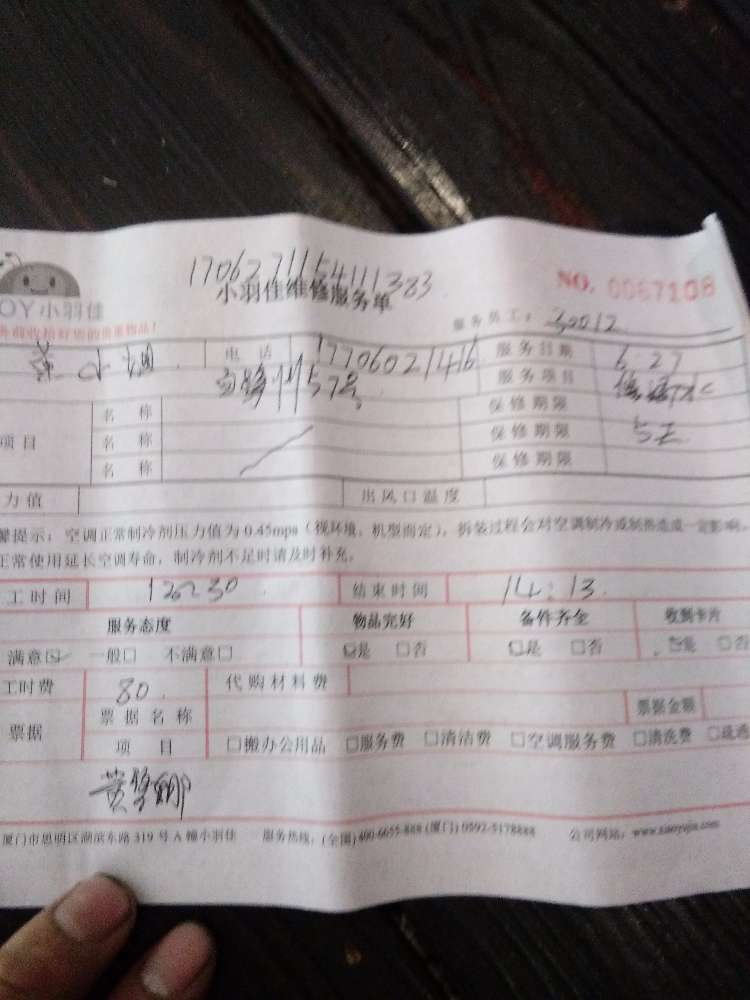 170627115411383
小羽佳维修服务单
NO. 0067108
OY小羽佳
服务员工: 30012
务前收拾好您的贵重物品!
电话 17706021416 服务日期 6.27
57号 服务项目
名称 保修期限
项目 名称 保修期限
名称 保修期限
力值 出风口温度
馨提示:空调正常制冷剂压力值为0.45mpa(视环境、机型而定),拆装过程会对空调制冷或制热造成一定影响。
正常使用延长空调寿命,制冷剂不足时请及时补充。
工时间 结束时间 14:13
服务态度 物品完好 备件齐全 收到卡片
满意☑ 一般□ 不满意□ ☑是 □否 □是 □否 是 □否
工时费 80 代购材料费
票据 票据名称 票据金额
项目 □搬办公用品 □服务费 □清洁费 □空调服务费 □清洗费 □疏通
厦门市思明区湖滨东路319号A幢小羽佳 服务热线:(全国)400-6655-888 (厦门)0592-5178888 公司网站:www.xiaoyujia.com